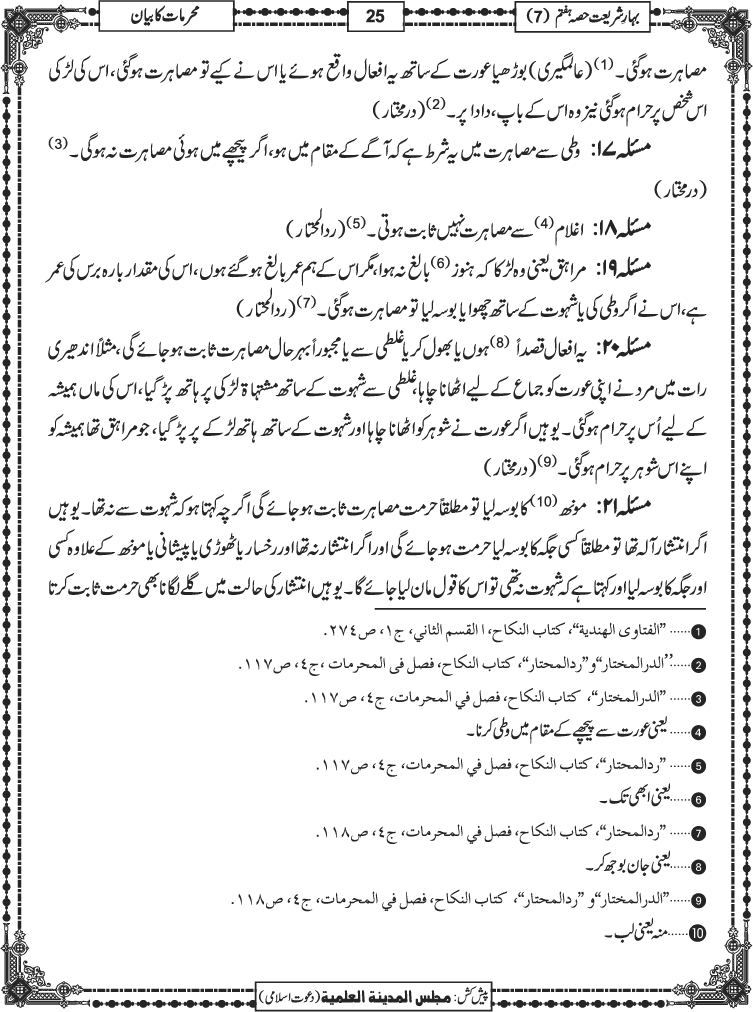 بہارِ شریعت حصہ ہفتم (7)
25
محرمات کا بیان
مصاہرت ہوگئی۔(1) (عالمگیری) بوڑھیا عورت کے ساتھ یہ افعال واقع ہوئے یا اس نے کیے تو مصاہرت ہوگئی، اس کی لڑکی
اس شخص پر حرام ہوگئی نیز وہ اس کے باپ، دادا پر۔(2) (درمختار)
مسئلہ ۱۷: وطی سے مصاہرت میں یہ شرط ہے کہ آگے کے مقام میں ہو، اگر پیچھے میں ہوئی مصاہرت نہ ہوگی۔(3)
(درمختار)
مسئلہ ۱۸: اغلام(4) سے مصاہرت نہیں ثابت ہوتی۔(5) (ردالمحتار)
مسئلہ ۱۹: مراہق یعنی وہ لڑکا کہ ہنوز(6) بالغ نہ ہوا، مگر اس کے ہم عمر بالغ ہوگئے ہوں، اس کی مقدار بارہ برس کی عمر
ہے، اس نے اگر وطی کی یا شہوت کے ساتھ چھوا یا بوسہ لیا تو مصاہرت ہوگئی۔(7) (ردالمحتار)
مسئلہ ۲۰: یہ افعال قصداً(8) ہوں یا بھول کر یا غلطی سے یا مجبوراً بہرحال مصاہرت ثابت ہوجائے گی، مثلاً اندھیری
رات میں مرد نے اپنی عورت کو جماع کے لیے اٹھانا چاہا، غلطی سے شہوت کے ساتھ مشتہاۃ لڑکی پر ہاتھ پڑ گیا، اس کی ماں ہمیشہ
کے لیے اُس پر حرام ہوگئی۔ یوہیں اگر عورت نے شوہر کو اٹھانا چاہا اور شہوت کے ساتھ ہاتھ لڑکے پر پڑ گیا، جو مراہق تھا ہمیشہ کو
اپنے اس شوہر پر حرام ہوگئی۔(9) (درمختار)
مسئلہ ۲۱: مونھ(10) کا بوسہ لیا تو مطلقاً حرمت مصاہرت ثابت ہوجائے گی اگرچہ کہتا ہو کہ شہوت سے نہ تھا۔ یوہیں
اگر انتشار آلہ تھا تو مطلقاً کسی جگہ کا بوسہ لیا حرمت ہوجائے گی اور اگر انتشار نہ تھا اور رخسار یا ٹھوڑی یا پیشانی یا مونھ کے علاوہ کسی
اور جگہ کا بوسہ لیا اور کہتا ہے کہ شہوت نہ تھی تو اس کا قول مان لیا جائے گا۔ یوہیں انتشار کی حالت میں گلے لگانا بھی حرمت ثابت کرتا
1 ...... ”الفتاوى الهندية“، كتاب النكاح، ا القسم الثاني، ج۱، ص۲۷٤.
2 ...... ”الدرالمختار“و”ردالمحتار“، كتاب النكاح، فصل فى المحرمات ،ج٤، ص۱۱۷.
3 ...... ”الدرالمختار“، كتاب النكاح، فصل في المحرمات، ج٤، ص۱۱۷.
4 ...... یعنی عورت سے پیچھے کے مقام میں وطی کرنا۔
5 ...... ”ردالمحتار“، كتاب النكاح، فصل في المحرمات، ج٤، ص۱۱۷.
6 ...... یعنی ابھی تک۔
7 ...... ”ردالمحتار“، كتاب النكاح، فصل في المحرمات، ج٤، ص۱۱۸.
8 ...... یعنی جان بوجھ کر۔
9 ...... ”الدرالمختار“و ”ردالمحتار“، كتاب النكاح، فصل في المحرمات، ج٤، ص۱۱۸.
10 ...... منہ یعنی لب۔
پیش کش: مجلس المدينة العلمية (دعوت اسلامی)